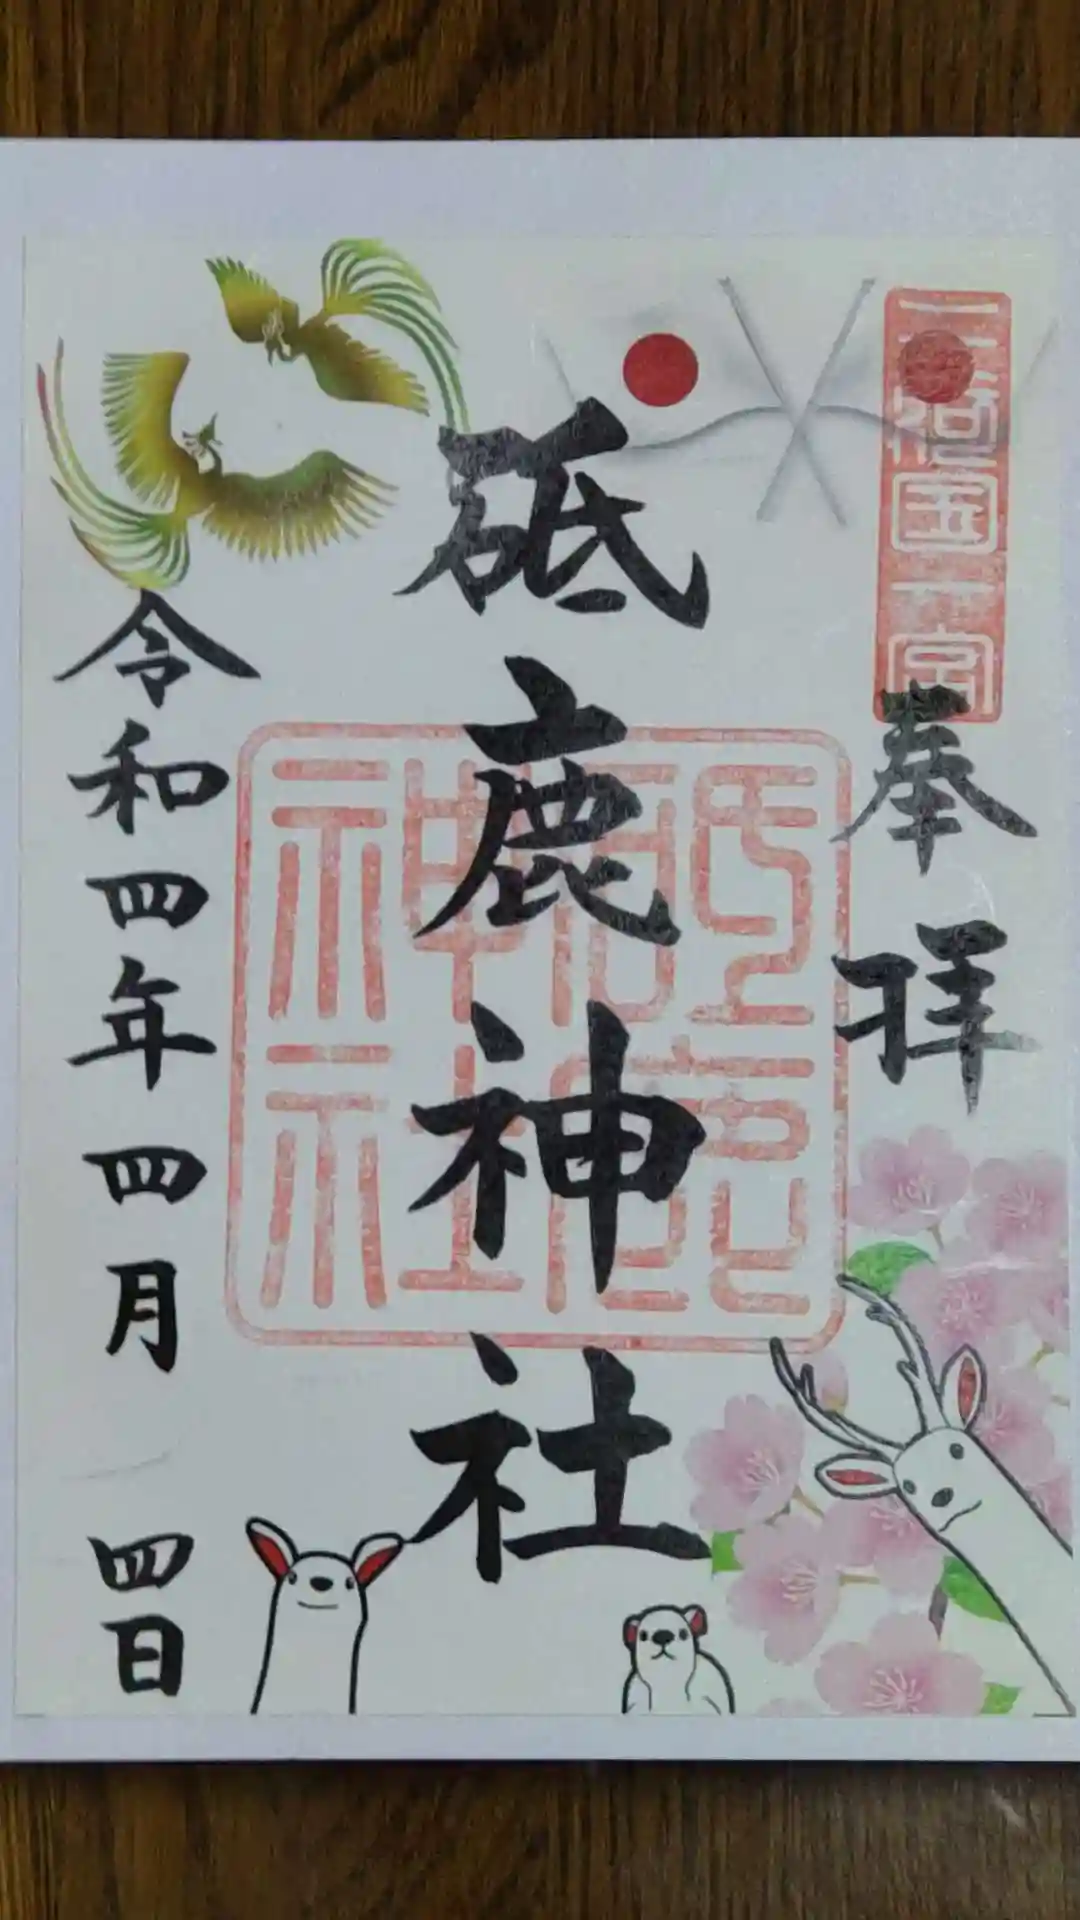 三河国一宮
奉拝
砥鹿神社
砥鹿神社
令和四年四月四日